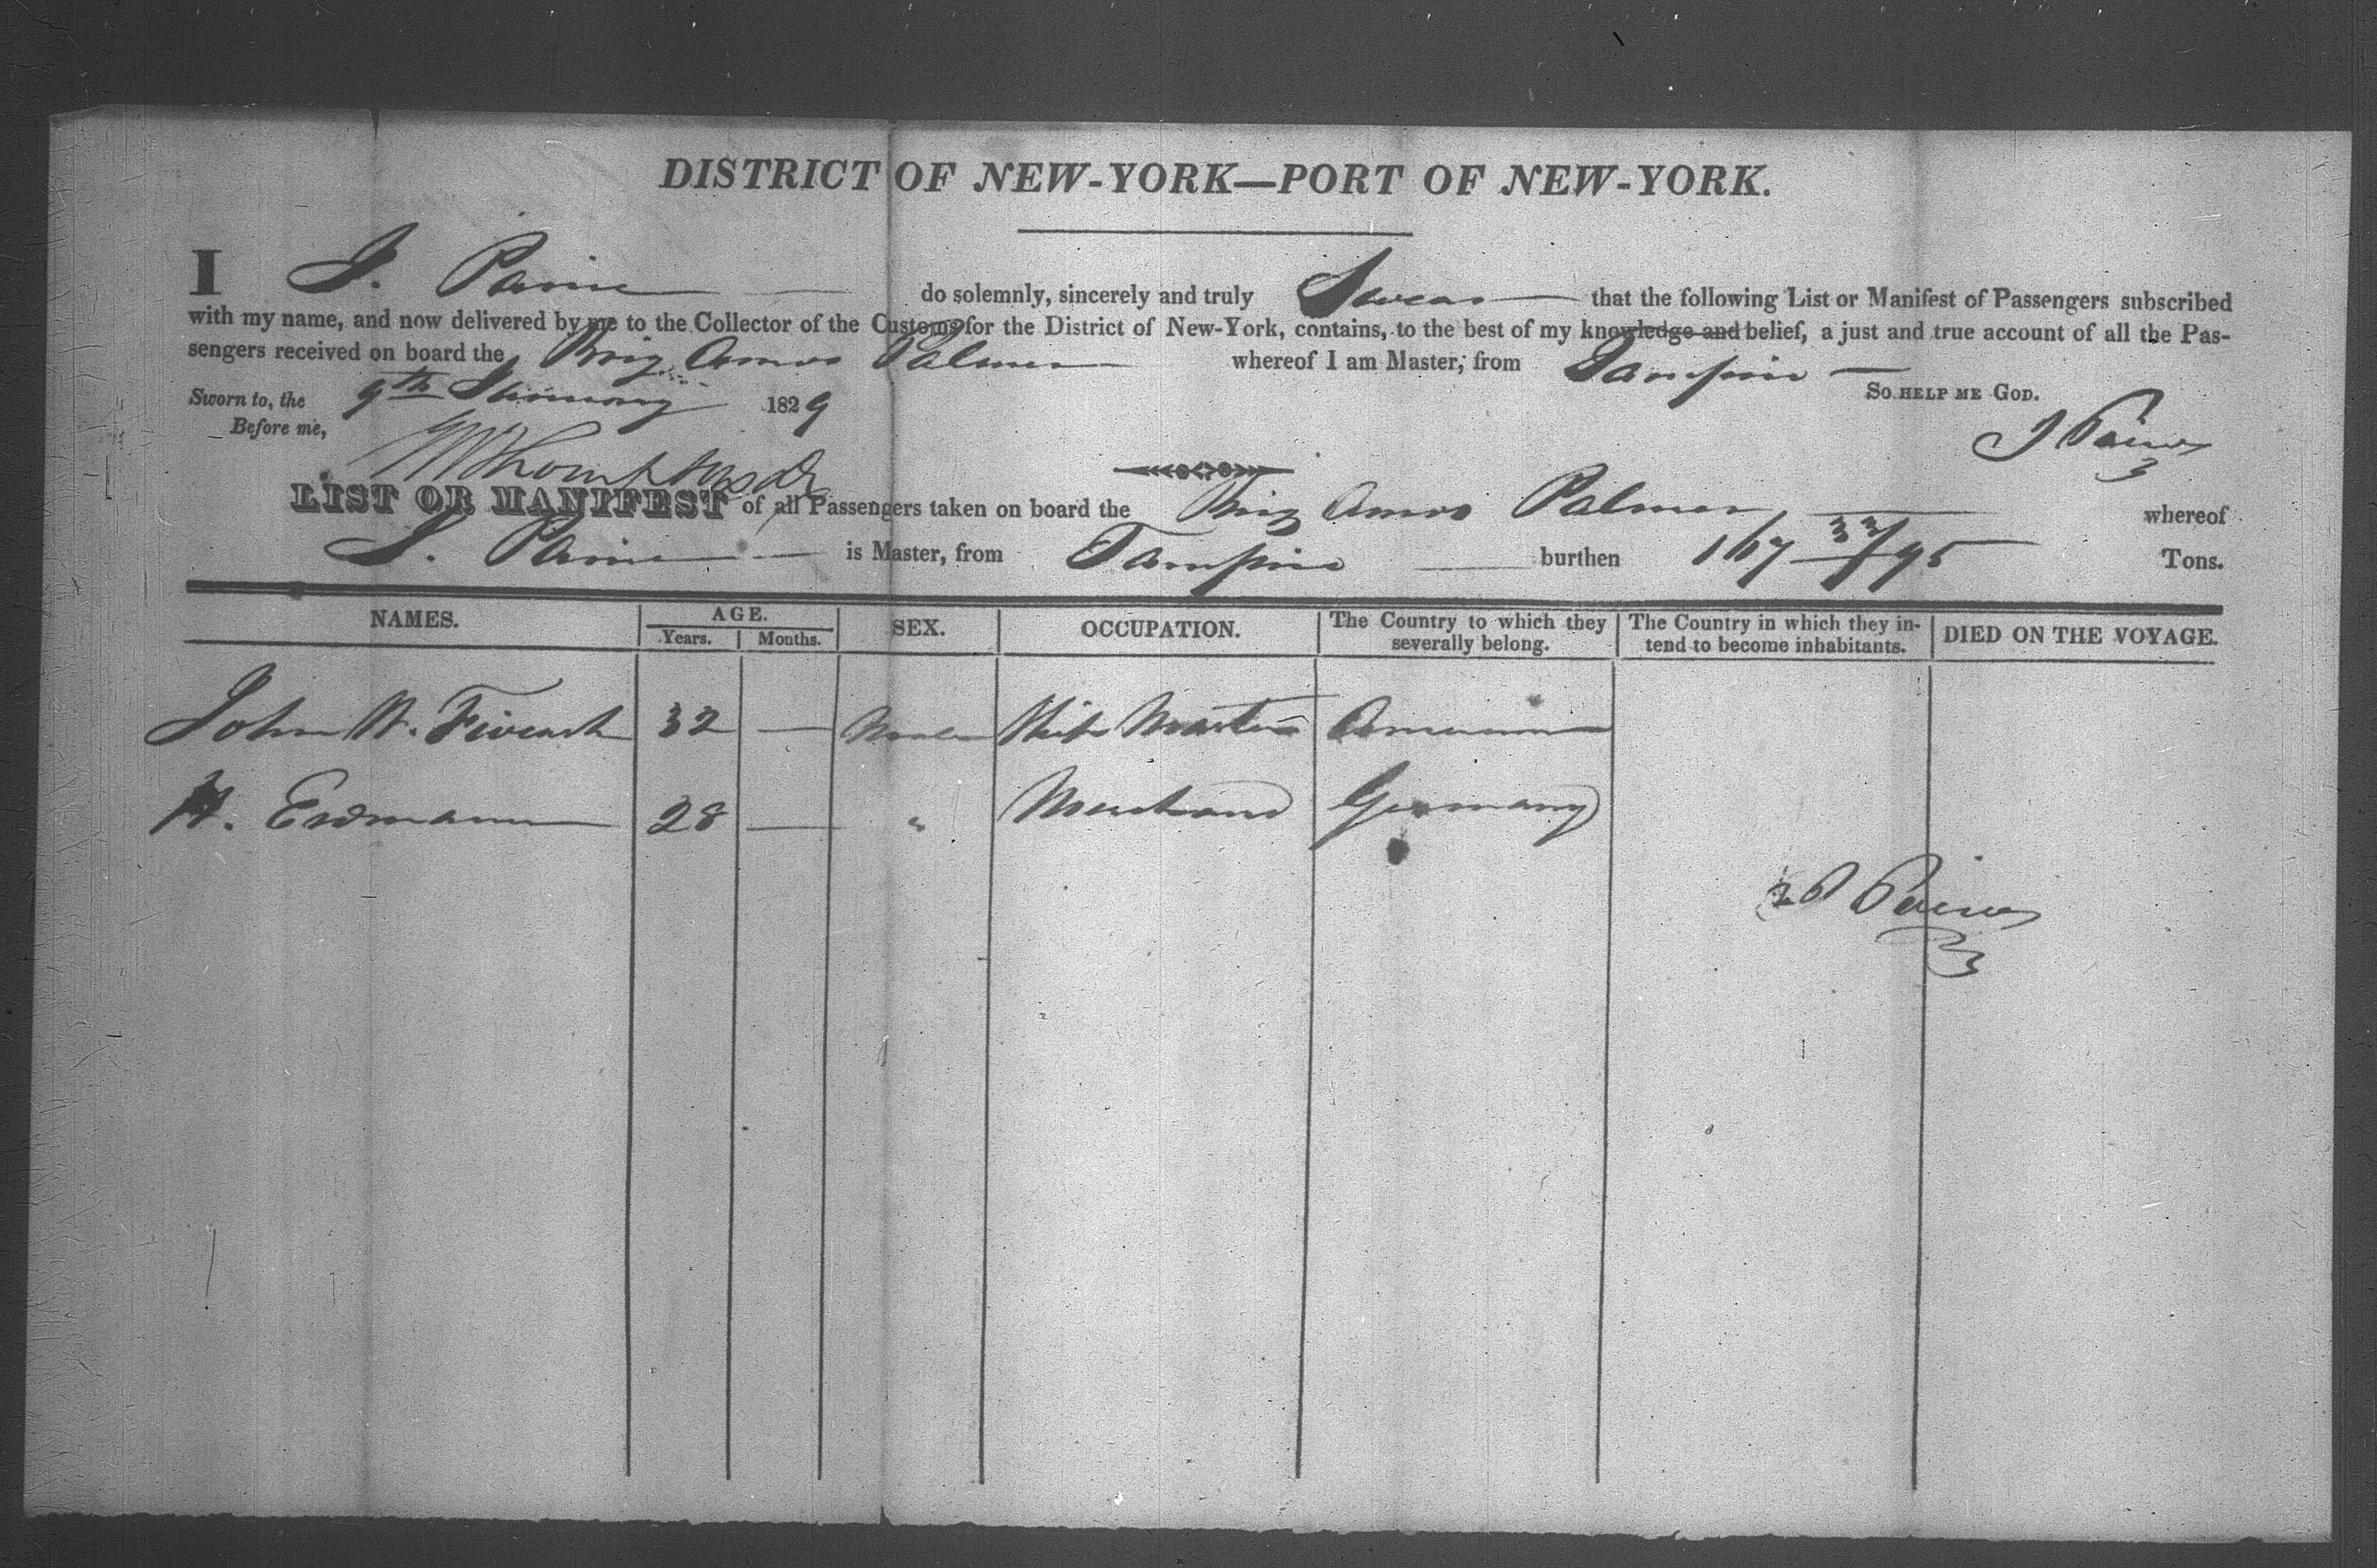 DISTRICT OF NEW-YORK—PORT OF NEW-YORK.
I J. Paine do solemnly, sincerely and truly Swear that the following List or Manifest of Passengers subscribed
with my name, and now delivered by me to the Collector of the Customs for the District of New-York, contains, to the best of my knowledge and belief, a just and true account of all the Pas-
sengers received on board the Brig Amos Palmer whereof I am Master, from Tampico
So HELP ME GOD.
Sworn to, the 9th 1829
Before me,
J Paine
LIST OR MANIFEST of all Passengers taken on board the Brig Amos Palmer whereof
J. Paine is Master, from Tampico burthen 167 33/95 Tons.
NAMES. AGE. Years. Months. SEX. OCCUPATION. The Country to which they severally belong. The Country in which they in-tend to become inhabitants. DIED ON THE VOYAGE.
John 32 — Male Ship Master American
H. Erdmann 28 — " Merchand Germany
J Paine